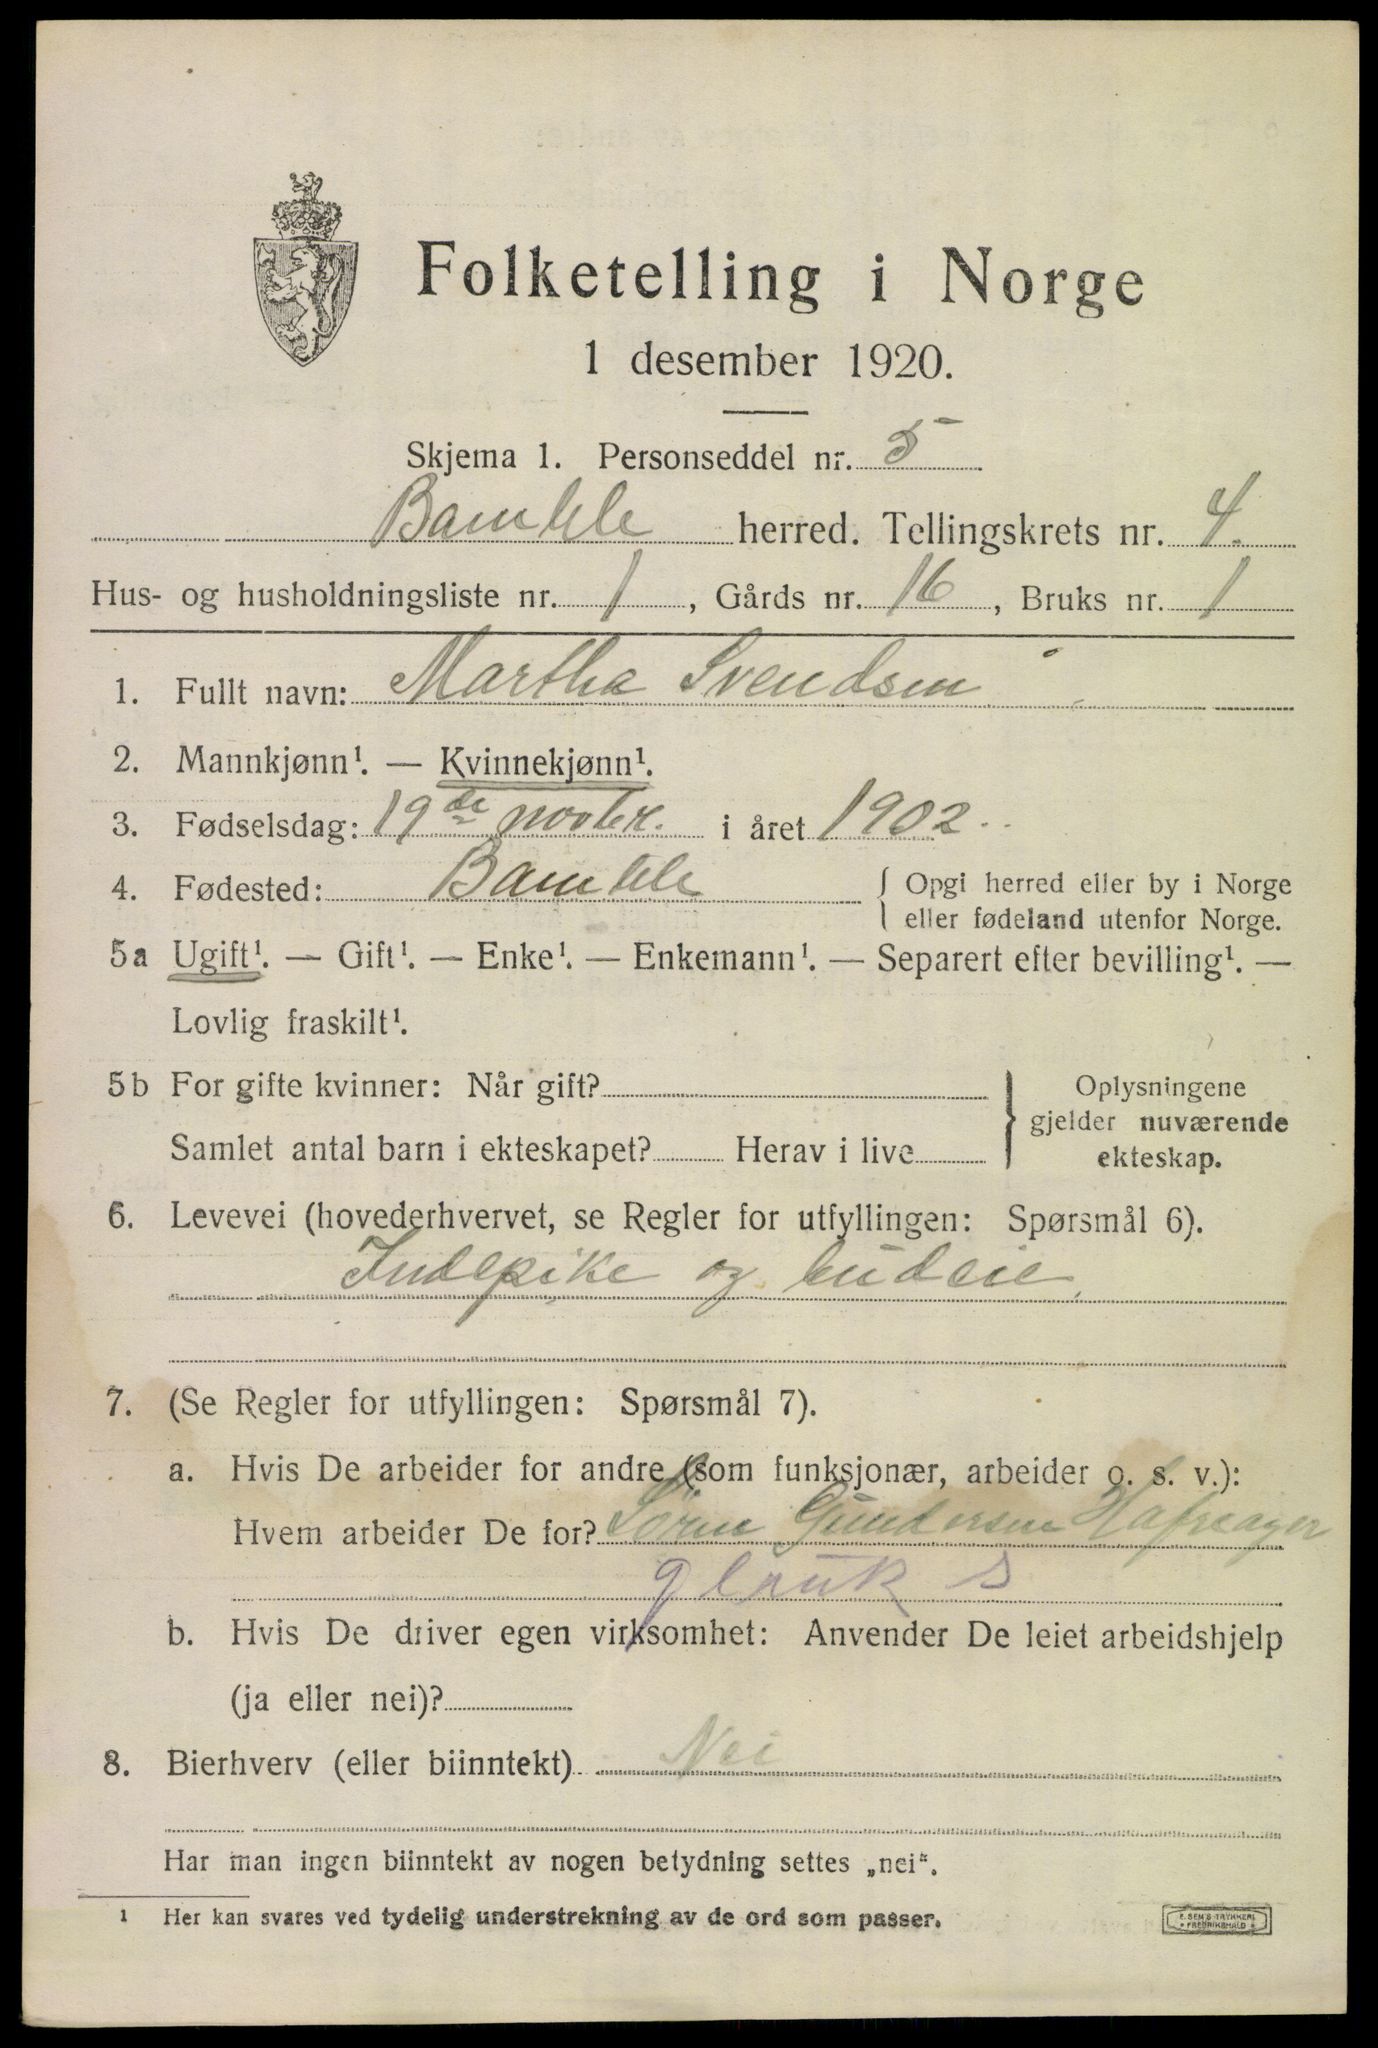 Folketelling i Norge
1 desember 1920.
Skjema 1. Personseddel nr. 5
Bamble herred. Tellingskrets nr. 4.
Hus- og husholdningsliste nr. 1, Gårds nr. 16, Bruks nr. 1
1. Fullt navn: Martha Svendsen
2. Mannkjønn¹. — Kvinnekjønn¹.
3. Fødselsdag: 19de novbr. i året 1902.
4. Fødested: Bamble { Opgi herred eller by i Norge
eller fødeland utenfor Norge.
5a Ugift¹. — Gift¹. — Enke¹. — Enkemann¹. — Separert efter bevilling¹. —
Lovlig fraskilt¹.
5b For gifte kvinner: Når gift?
Samlet antal barn i ekteskapet? Herav i live
} Oplysningene
gjelder nuværende
ekteskap.
6. Levevei (hovederhvervet, se Regler for utfyllingen: Spørsmål 6).
Indepike og budeie
7. (Se Regler for utfyllingen: Spørsmål 7).
a. Hvis De arbeider for andre (som funksjonær, arbeider o. s. v.):
Hvem arbeider De for? Sørn Gundersen Hafreager
g bruk s
b. Hvis De driver egen virksomhet: Anvender De leiet arbeidshjelp
(ja eller nei)?
8. Bierhverv (eller biinntekt) Nei
Har man ingen biinntekt av nogen betydning settes „nei“.
¹ Her kan svares ved tydelig understrekning av de ord som passer.
E. SEM'S TRYKKERI
FREDRIKSHALD